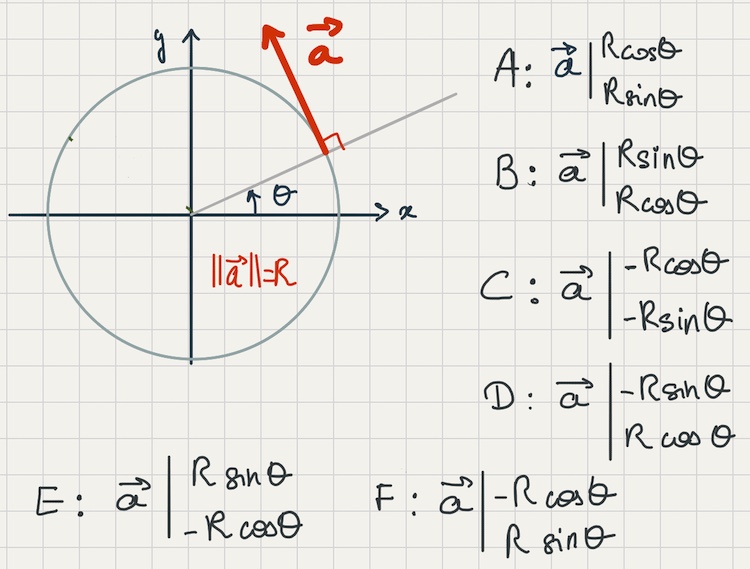 y
a
A: a | Rcosθ
Rsinθ
B: a | Rsinθ
Rcosθ
θ
x
||a||=R
C: a | -Rcosθ
-Rsinθ
D: a | -Rsinθ
R cosθ
E: a | R sinθ
-R cosθ
F: a | -R cosθ
R sinθ